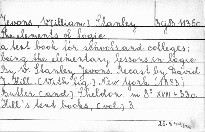 Jevons, (William) Stanley
The elements of logic
a text book for schools and colleges;
being the elementary lessons in logic
By W. Stanley Jevons. Recast by David
J. Hill. (With fig.) New York, (1883)
Sheldon in 8° XVII + 330
Hill's text books, (vol.) 3.